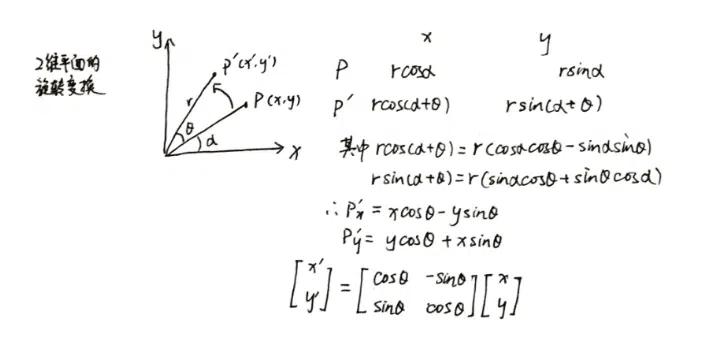 2维平面的
旋转变换
y
P'(x',y')
r
P(x,y)
θ
α
x
x y
P rcosα rsinα
P' rcos(α+θ) rsin(α+θ)
其中 rcos(α+θ)=r(cosαcosθ-sinαsinθ)
rsin(α+θ)=r(sinαcosθ+sinθcosα)
∴ P'x = xcosθ-ysinθ
P'y = ycosθ+xsinθ
[x' y'] = [cosθ -sinθ sinθ cosθ][x y]